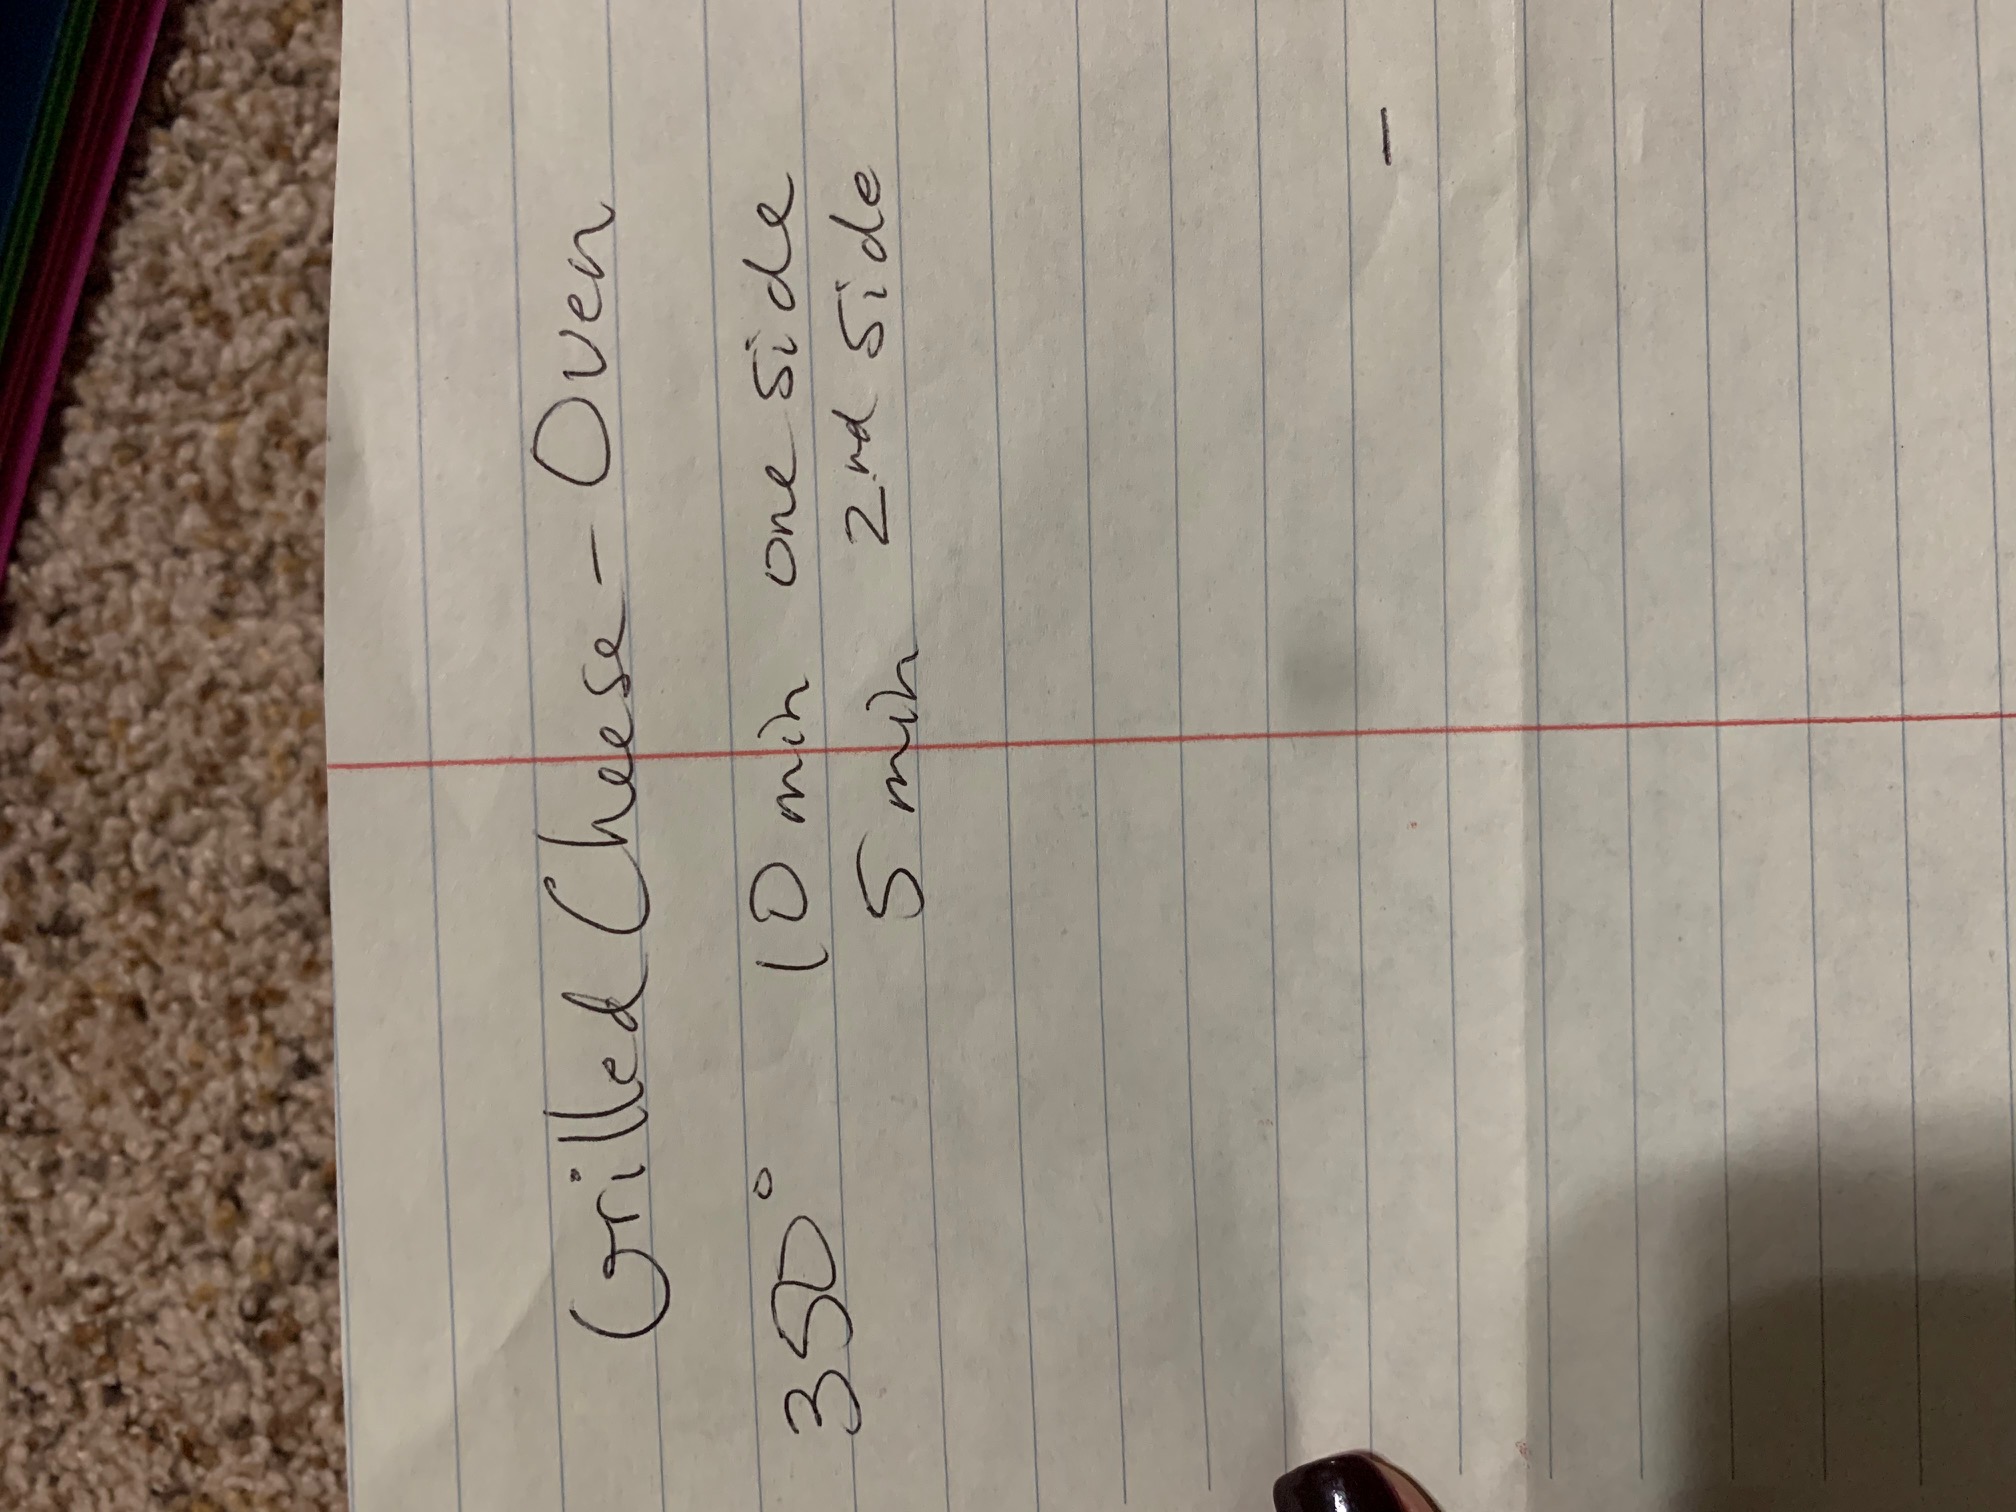 Grilled Cheese - Oven
350° 10 min one side
5 min 2nd side